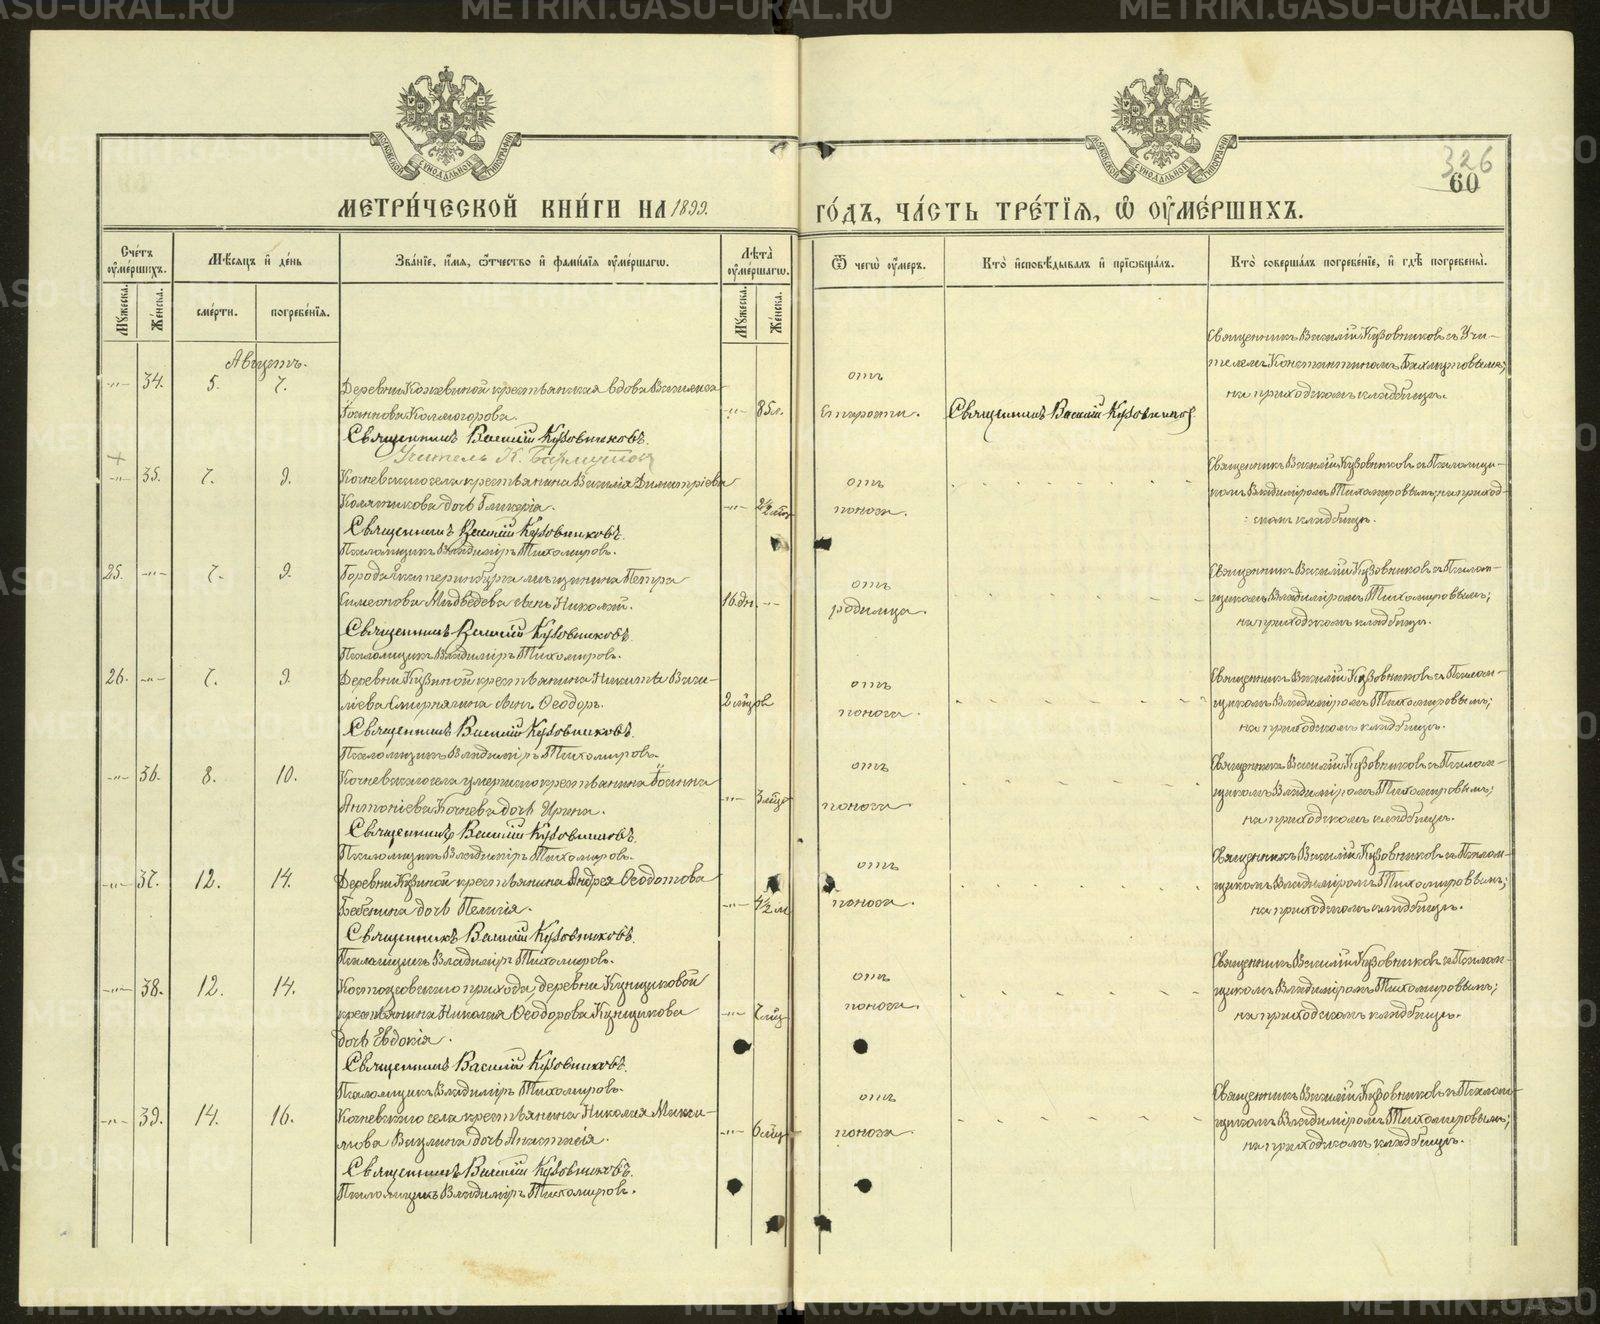 326
60
МЕТРИ́ЧЕСКОЙ КНИ́ГИ НА 1899.
ГО́ДЪ, ЧА́СТЬ ТРЕ́ТІѦ, Ѿ ОУМЕ́РШИХЪ.
Сче́тъ оуме́ршихъ.
Мѣ́сѧцъ и де́нь
Зва́ніе, и́мѧ, ѻ́тчество и фами́лія оуме́ршагѡ.
Лѣ́та оуме́ршагѡ.
Ѿ чегѡ̀ оу́меръ.
Кто̀ исповѣ́дывалъ и пріобща́лъ.
Кто̀ соверша́лъ погребе́ніе, и гдѣ̀ погребены̀.
Мꙋ́жеска.
Же́нска.
сме́рти.
погребе́нія.
Мꙋ́жеска.
Же́нска.
Августъ.
-"- 34. 5. 7.
Деревни Кожевиной крестьянская вдова Василиса
Іоаннова Колмогорова.
Священникъ Василій Кузовниковъ.
Учитель К. Бахмутовъ
-"- 85 л.
отъ
старости.
Священникъ Василій Кузовниковъ
Священникъ Василій Кузовниковъ съ Учи-
телемъ Константиномъ Бахмутовымъ;
на приходскомъ кладбищѣ.
-"- 35. 7. 9.
Кочневского села крестьянина Василія Димитріева
дочь Гликерія.
Священникъ Василій Кузовниковъ.
Псаломщикъ Владиміръ Тихомировъ.
отъ
поноса.
Священникъ Василій Кузовниковъ съ Псаломщи-
комъ Владиміромъ Тихомировымъ; на приход-
скомъ кладбищѣ.
25. -"- 7. 9.
Города Екатеринбурга мѣщанина Петра
Симеонова Медвѣдева сынъ Николай.
Священникъ Василій Кузовниковъ.
Псаломщикъ Владиміръ Тихомировъ.
16 дн. -"-
отъ
родимца.
Священникъ Василій Кузовниковъ съ Псалом-
щикомъ Владиміромъ Тихомировымъ;
на приходскомъ кладбищѣ.
26. -"- 7. 9.
крестьянина Никиты Васи-
ліева Смирнягина сынъ Ѳеодоръ.
Священникъ Василій Кузовниковъ.
Псаломщикъ Владиміръ Тихомировъ.
отъ
поноса.
Священникъ Василій Кузовниковъ съ Псалом-
щикомъ Владиміромъ Тихомировымъ;
на приходскомъ кладбищѣ.
-"- 36. 8. 10.
Кочневского села умершаго крестьянина Іоанна
Антоніева Кочнева дочь Ирина.
Священникъ Василій Кузовниковъ.
Псаломщикъ Владиміръ Тихомировъ.
отъ
поноса.
Священникъ Василій Кузовниковъ съ Псалом-
щикомъ Владиміромъ Тихомировымъ;
на приходскомъ кладбищѣ.
-"- 37. 12. 14.
крестьянина Андрея Ѳеодотова
Бебенина дочь Пелагія.
Священникъ Василій Кузовниковъ.
Псаломщикъ Владиміръ Тихомировъ.
отъ
поноса.
Священникъ Василій Кузовниковъ съ Псалом-
щикомъ Владиміромъ Тихомировымъ;
на приходскомъ кладбищѣ.
-"- 38. 12. 14.
прихода, деревни
крестьянина Николая Ѳеодорова
дочь Евдокія.
Священникъ Василій Кузовниковъ.
Псаломщикъ Владиміръ Тихомировъ.
отъ
поноса.
Священникъ Василій Кузовниковъ съ Псалом-
щикомъ Владиміромъ Тихомировымъ;
на приходскомъ кладбищѣ.
-"- 39. 14. 16.
Кочневского села крестьянина Николая Макси-
мова дочь Анастасія.
Священникъ Василій Кузовниковъ.
Псаломщикъ Владиміръ Тихомировъ.
отъ
поноса.
Священникъ Василій Кузовниковъ съ Псалом-
щикомъ Владиміромъ Тихомировымъ;
на приходскомъ кладбищѣ.
METRIKI.GASU-URAL.RU